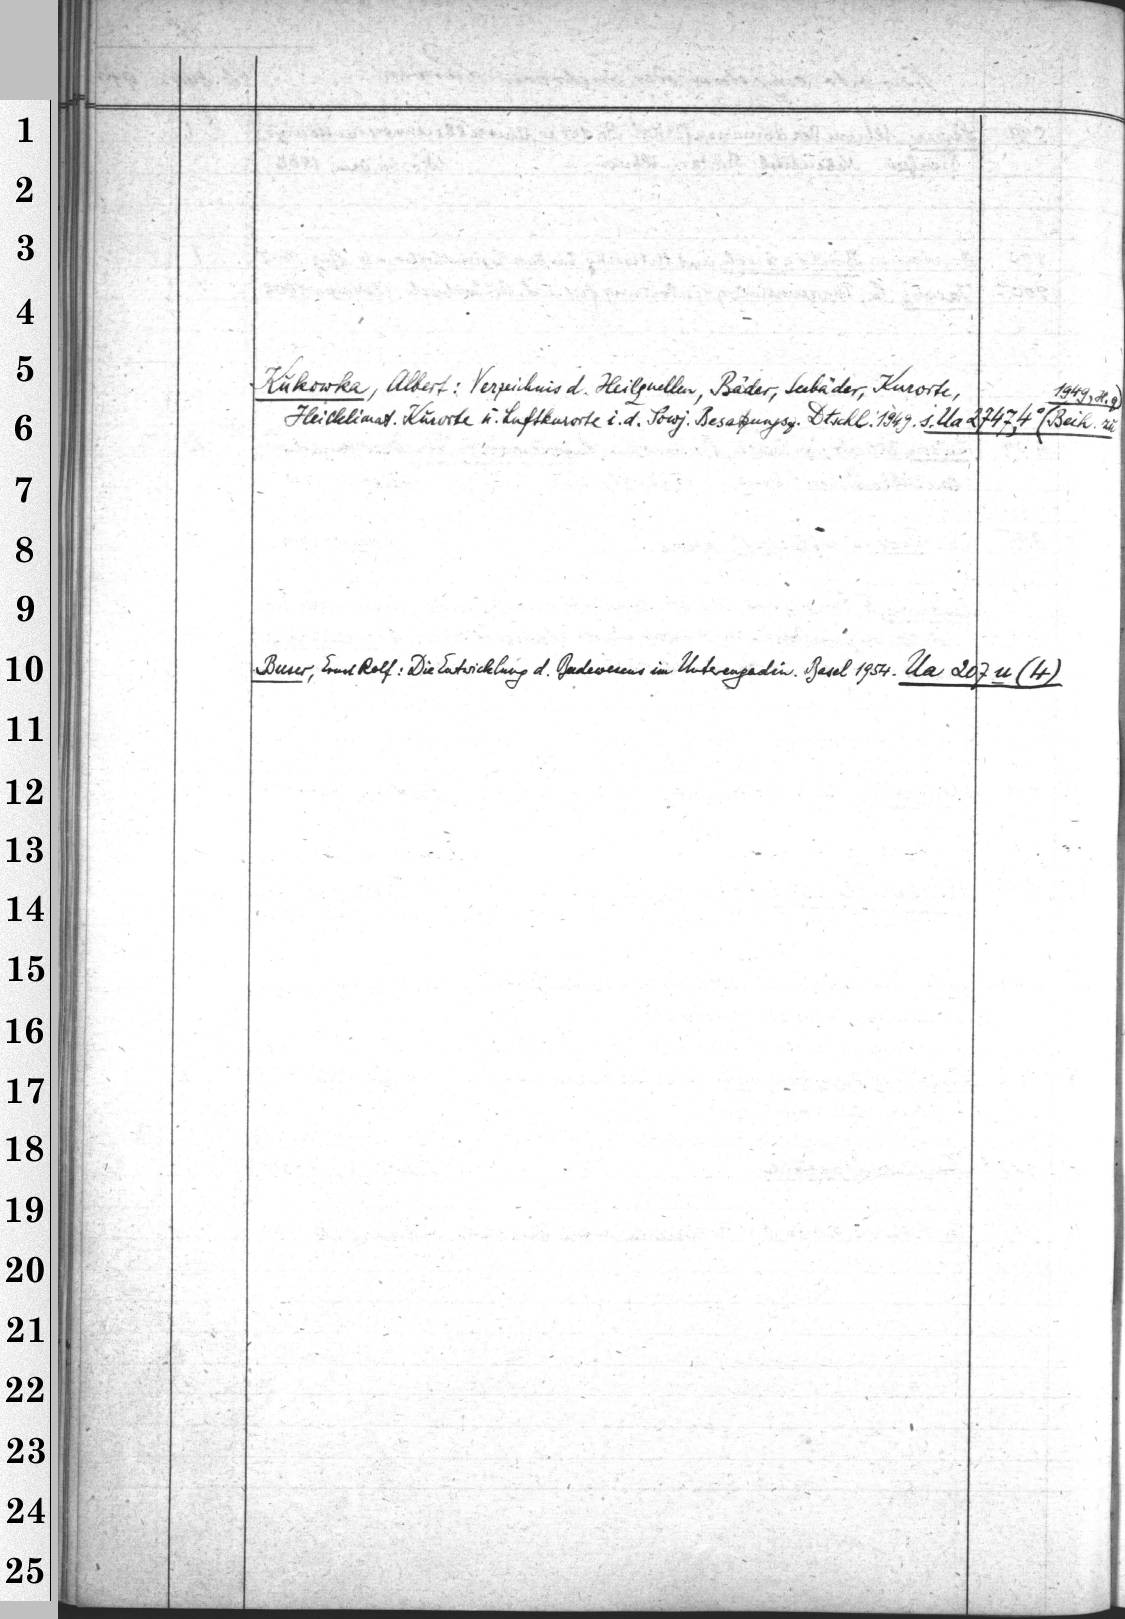 1
2
3
4
5
Kukowka, Albert: Verzeichnis d. Heilquellen, Bäder, Seebäder, Kurorte,
1949, H. 9)
6
Heilklimat. Kurorte u. Luftkurorte i. d. Sowj. Besatzungsz. Dtschl. 1949. s. Ua 2747, 4° (Beih. zu
7
8
9
10
Buser, Ernst Rolf: Die Entwicklung d. Badewesens im Unterengadin. Basel 1954. Ua 207 u (4)
11
12
13
14
15
16
17
18
19
20
21
22
23
24
25